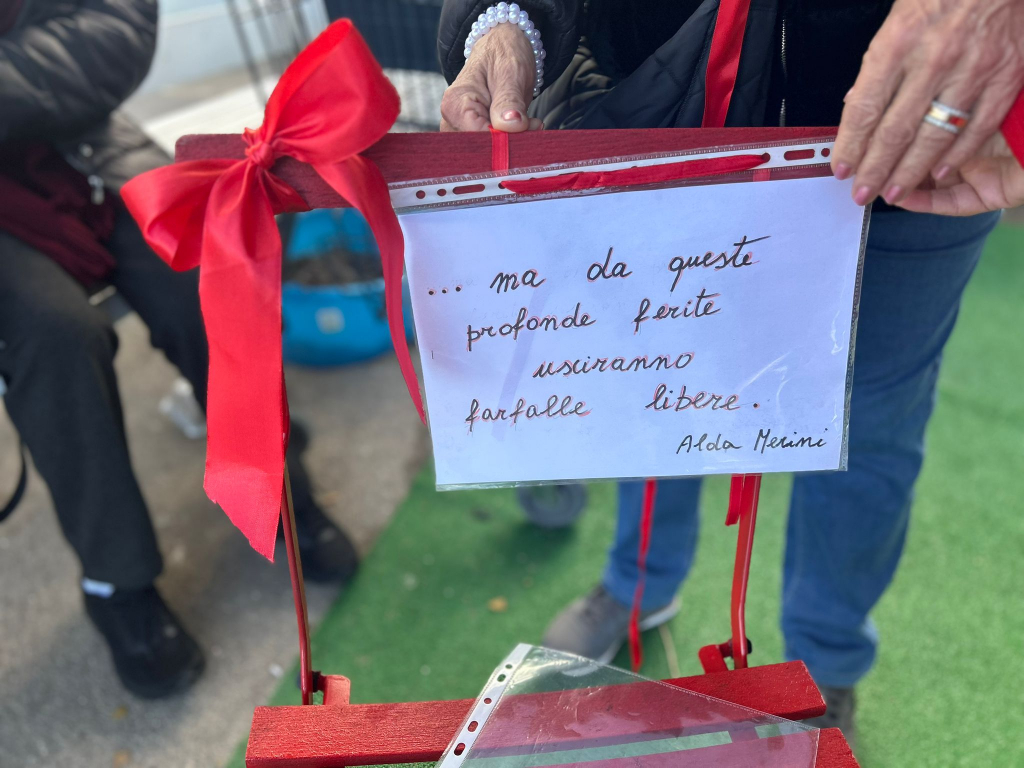 ... ma da queste
profonde ferite
usciranno
farfalle libere.
Alda Merini